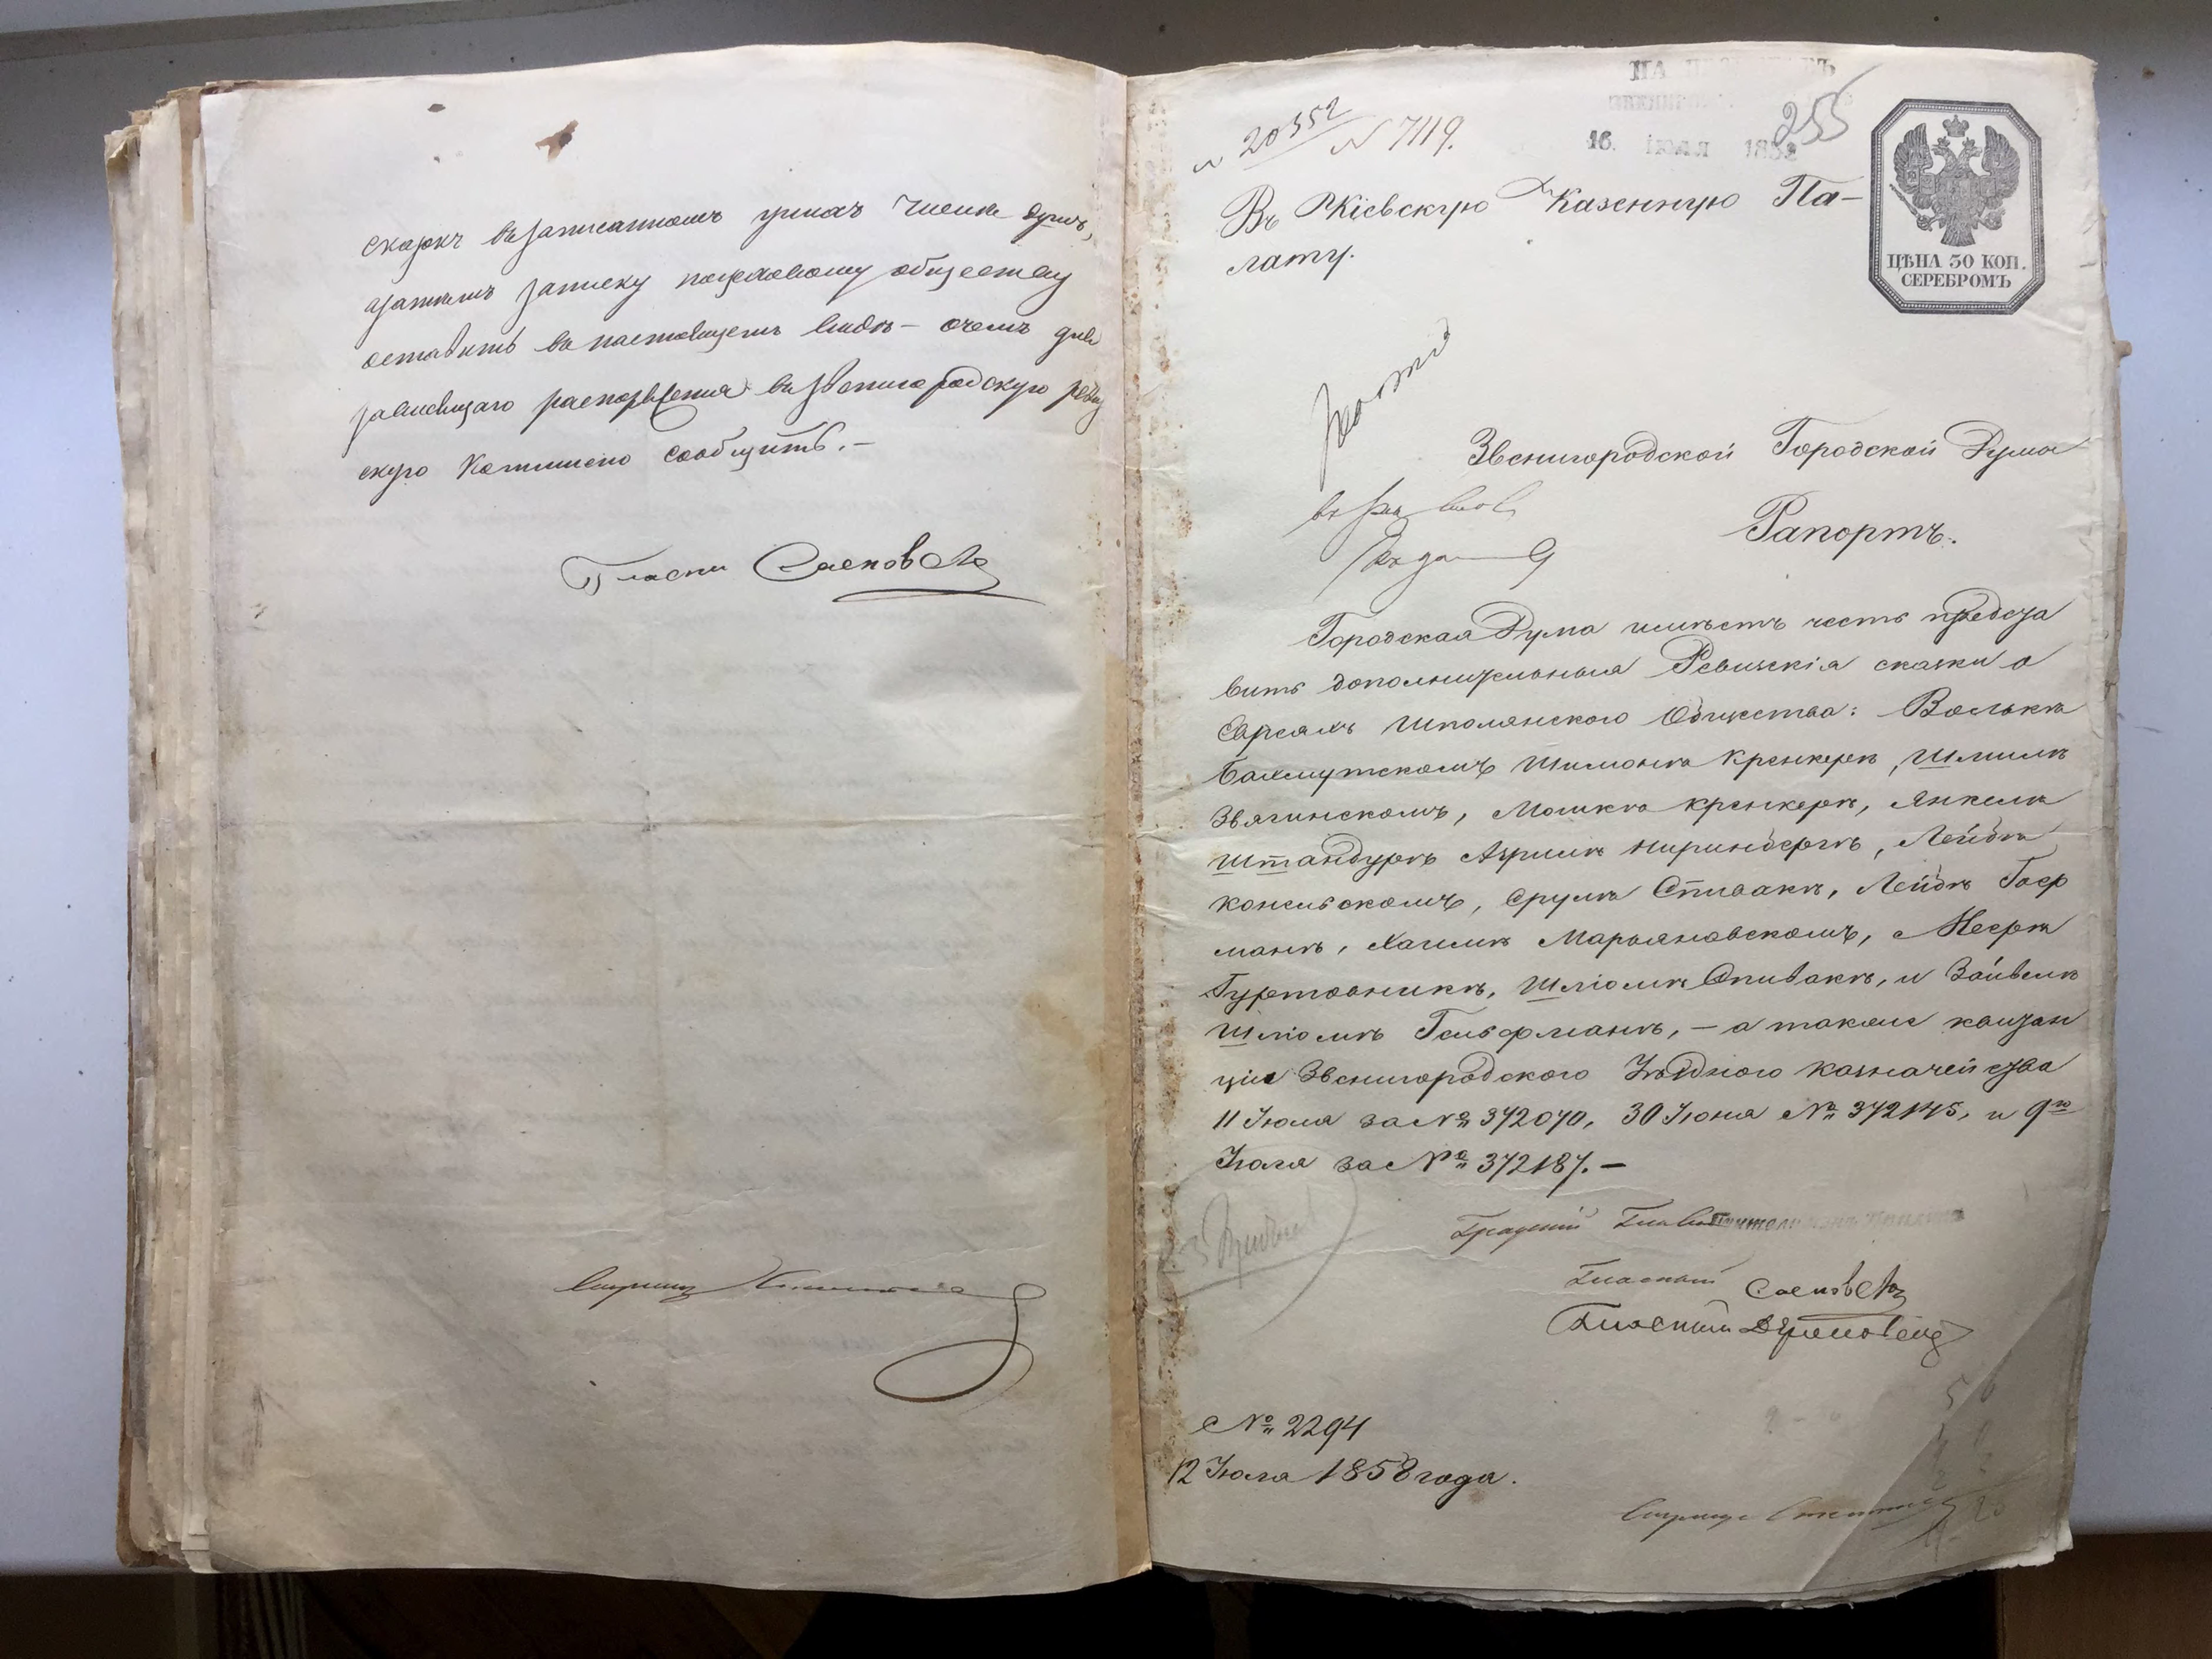 сказкѣ въ записанномъ ужназ числѣ душъ,
записку кагальному обществу
оставить въ настоящемъ видѣ – о чемъ для
зависящаго распоряженія въ Звенигородскую реви
скую Комисію сообщить. –
Гласны Сасковецъ
№ 20352
№ 7119.
255
16. іюля 1858
ЦѢНА 30 КОП.
СЕРЕБРОМЪ
Въ Кіевскую Казенную Па-
лату.
Звенигородской Городской Думы
Рапортъ.
Городская Дума имѣетъ честь предста
вить дополнительныя Ревизскія сказки о
Евреяхъ Шполянского Общества: Волькѣ
Бахмутскомъ Шимонѣ Кренкерѣ, Шмилѣ
Звягинскомъ, Мошкѣ Кренкерѣ, Янкелѣ
Штандурѣ Азриилѣ Ниринбергѣ, Лейбѣ
Конельскомъ, Срулѣ Спивакѣ, Лейбѣ Гоер
манѣ, Хаимѣ Марьяновскомъ, Меерѣ
Гуртовникѣ, Шліомѣ Спивакѣ, и Зайвелѣ
Шліомѣ Гельфманѣ, – а также квитан
ціи Звенигородского Уѣзднаго Казначейства
11 Іюля за № 372070, 30 Іюня № 372145, и 9го
Іюля за № 372187. –
Градскій Глава
Гласный Сасковецъ
Гласный
№ 2294
12 Іюля 1858 года.